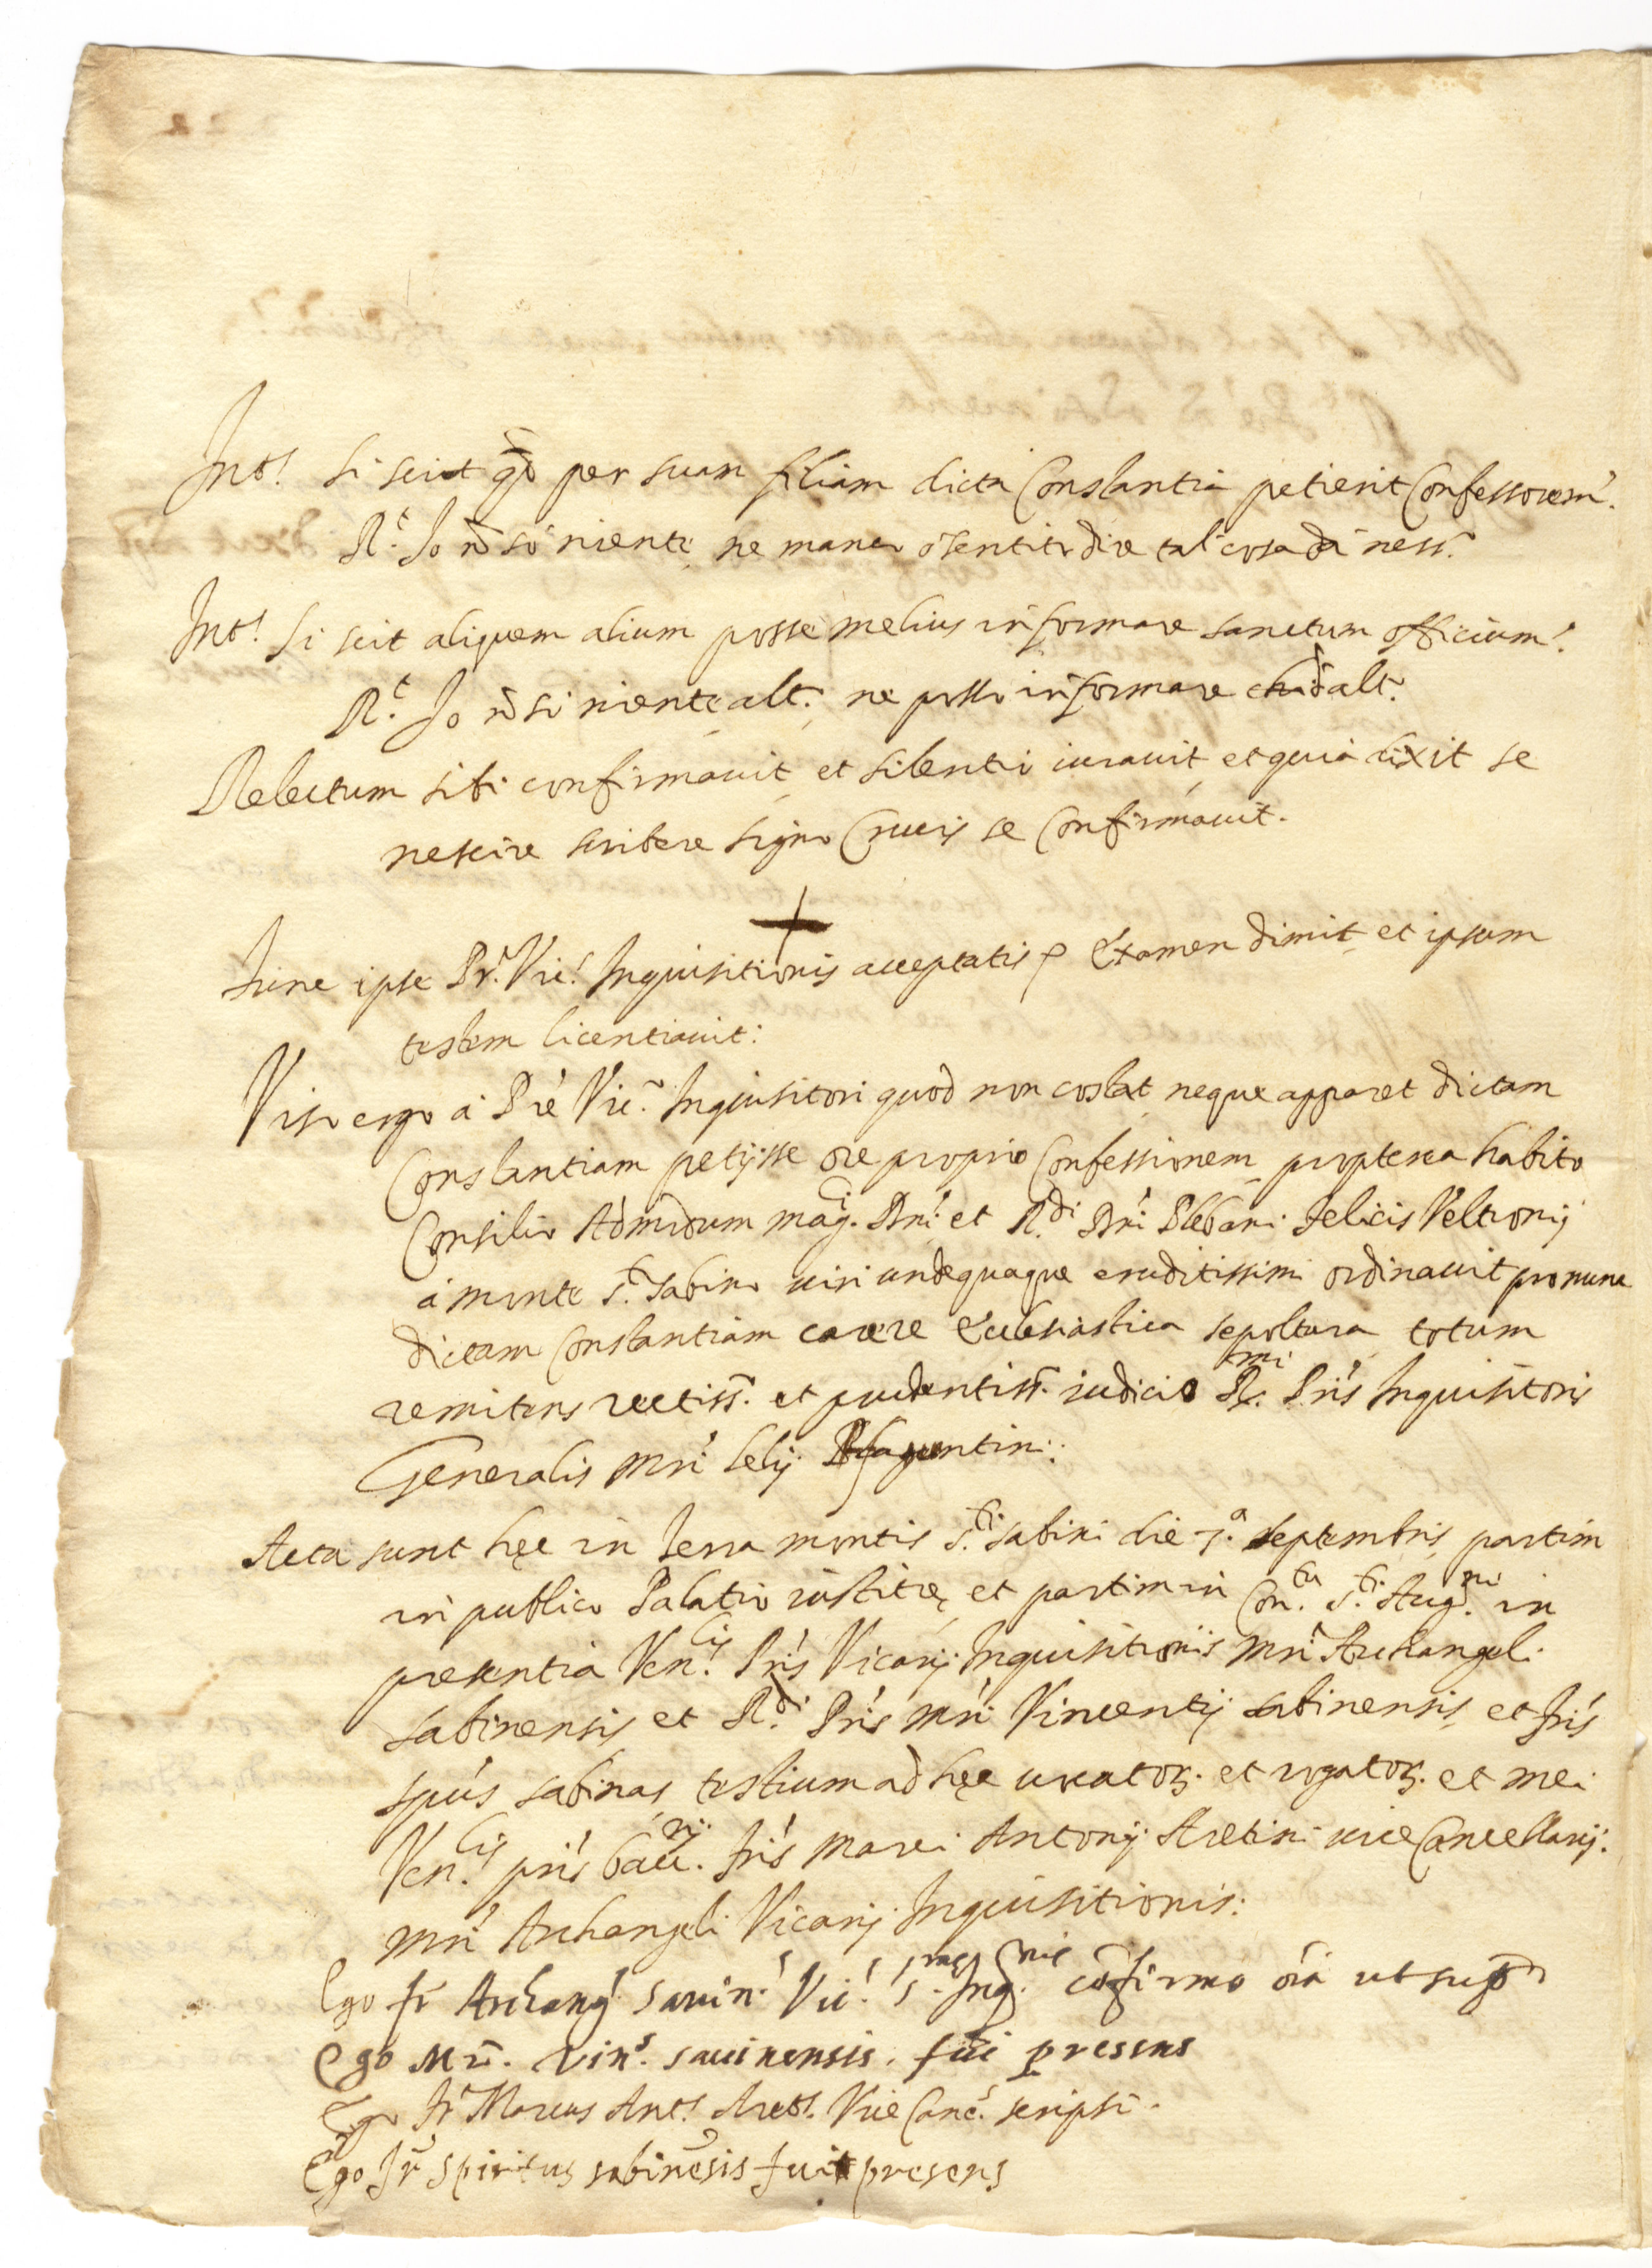 Int.s si scit qd per suam filiam dicta Constantia petierit Confessorem.
R.t Io nō so niente, ne manco ò sentito dire tal cosa da ness.o
Int.s si scit aliquem alium posse melius informare sanctum officium.
R.t Io nō si niente alt.o, ne posso informare d'alt.o
Relectum sibi confirmavit, et silentio iuravit, et quia dixit se
nescire scribere signo Crucis se Confirmavit.
+
hinc ipse Pr. Vic.s Inquisitionis acceptatis p Examen dimit, et ipsum
testem licentiavit:
Viso ergo à Pre Vic.o Inquisitori quod non costat neque apparet dictam
Constantiam petijsse ore proprio Confessionem, propterea habito
Consilio Admodum mag.ci Dni et R.di Dni Plebani Felicis Veltronij
à monte S.to Sabino viri undequaque eruditissimi ordinavit pro nunc
dictam Constantiam carere Ecclesiastica sepoltura, totum
remitens rectiss.o et prudentiss.o iudicio R.mi Pris Inquisitoris
Generalis Mri Lelij
Acta sunt hęc in Terra montis S.ti Sabini die 7.a septembris, partim
in publico Palatio iustitię, et partim in Con.tu S.ti Aug.ni in
presentia Ven.lis Pris Vicarij Inquisitionis Mri Archangeli
sabinensis et R.di Pris Mri Vincentij sabinensis, et fris
spus sabinas testium ad hęc vocator. et rogator. et mei
Ven.lis pris bac.rij fris Marci Antonij Aretini vice Cancellarij
Mri Archangeli Vicarij Inquisitionis:
Ego fr Archang.s savin.s Vic.s S.mae Inq.nis cōfirmo oīa ut supr
Ego Mr. Vin.s savinensis. fui presens
Ego fr Marcus Ant.s Aret.s Vice Canc.s scripsi.
Ego fr spiritus sabinēsis fuit presens